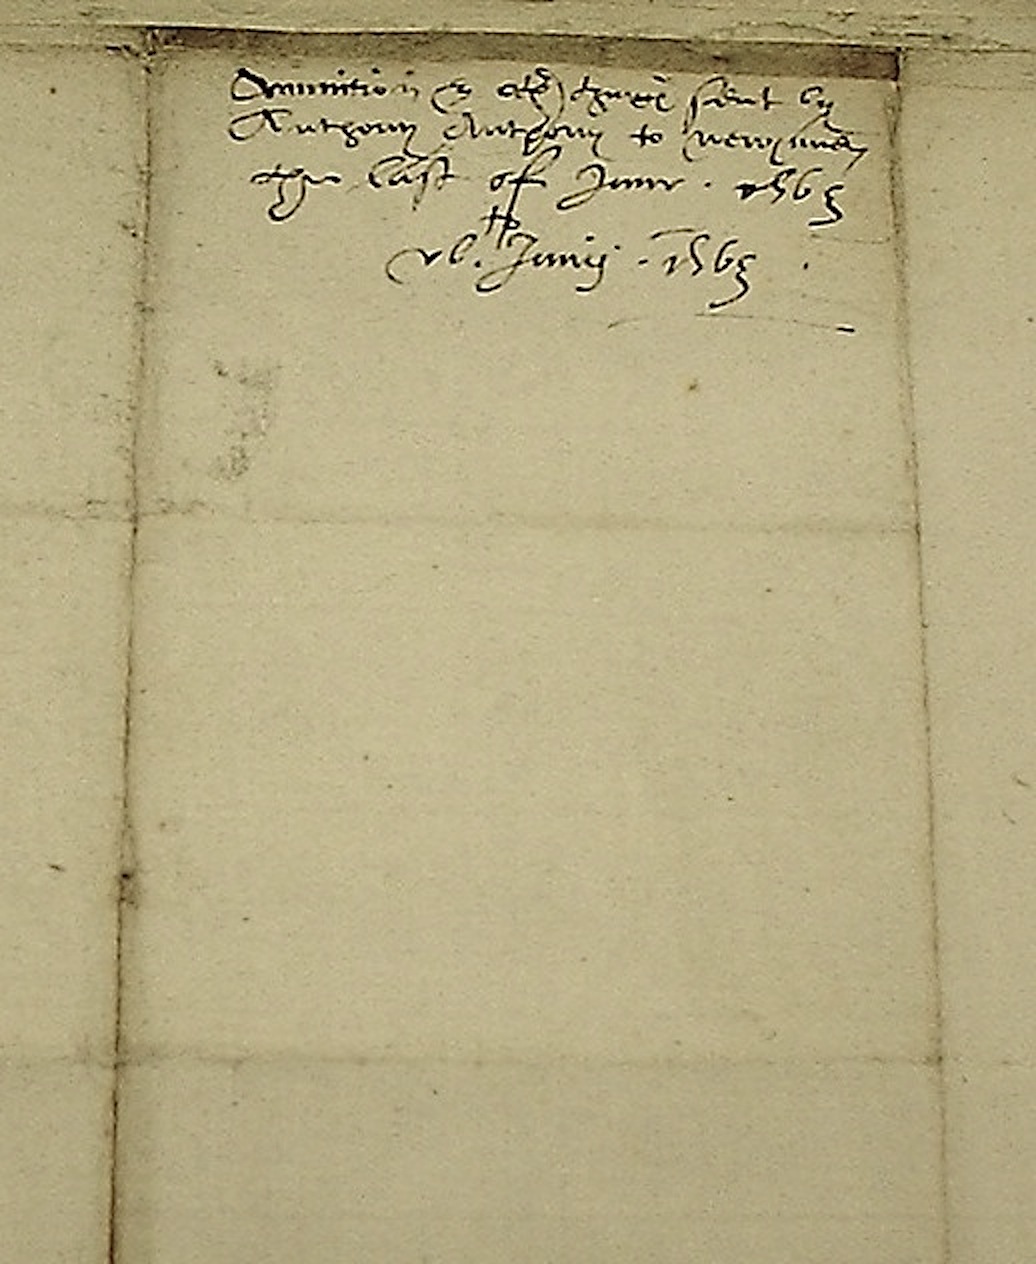 Amunition & other thinges sent by
Anthony Anthony to newhaven
the last of June . 1563
Junij . 1563